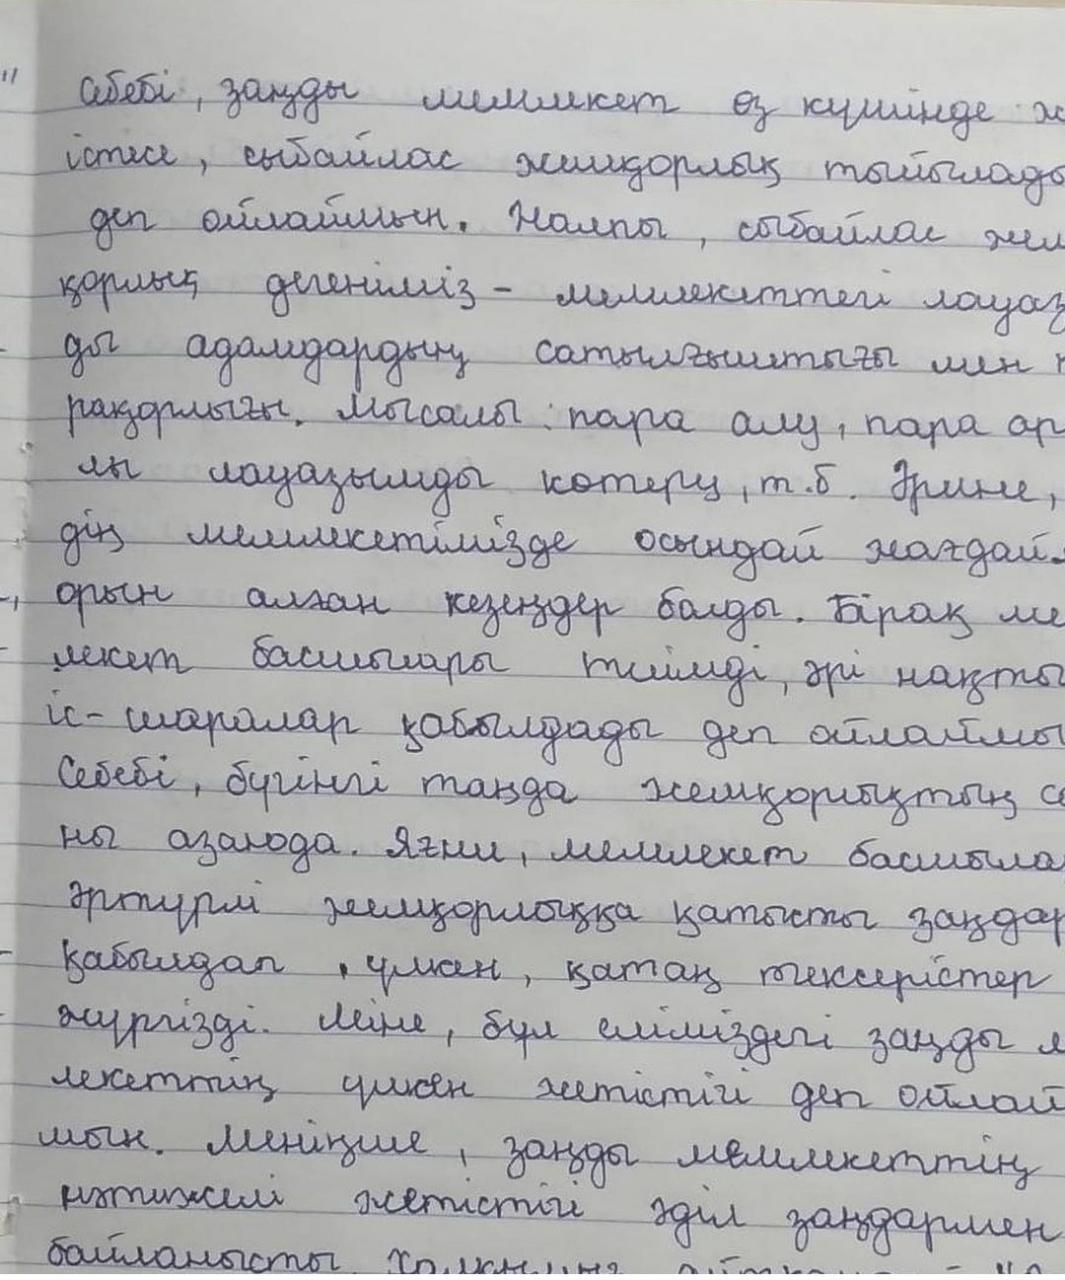 себебі, заңды мемлекет өз күшінде ж
істесе, сыбайлас жемқорлық тыйылады
деп ойлаймын. Жалпы, сыбайлас жем
қорлық дегеніміз - мемлекеттегі лауаз
ды адамдардың сатылғыштығы мен п
рақорлығы. Мысалы: пара алу, пара ар
лы лауазымды көтеру, т.б. Әрине,
дің мемлекетімізде осындай жағдай
орын алған кезеңдер болды. Бірақ ме
лекет басшылары тиімді, әрі нақты
іс-шаралар қабылдады деп ойлаймы
Себебі, бүгінгі таңда жемқорлықтың са
ны азаюда. Яғни, мемлекет басшыла
әртүрлі жемқорлыққа қатысты заңдар
қабылдап, үлкен, қатаң тексерістер
жүргізді. Міне, бұл еліміздегі заңды м
лекеттің үлкен жетістігі деп ойлай
мын. Меніңше, заңды мемлекеттің
нәтижелі жетістігі әділ заңдармен
байланысты.